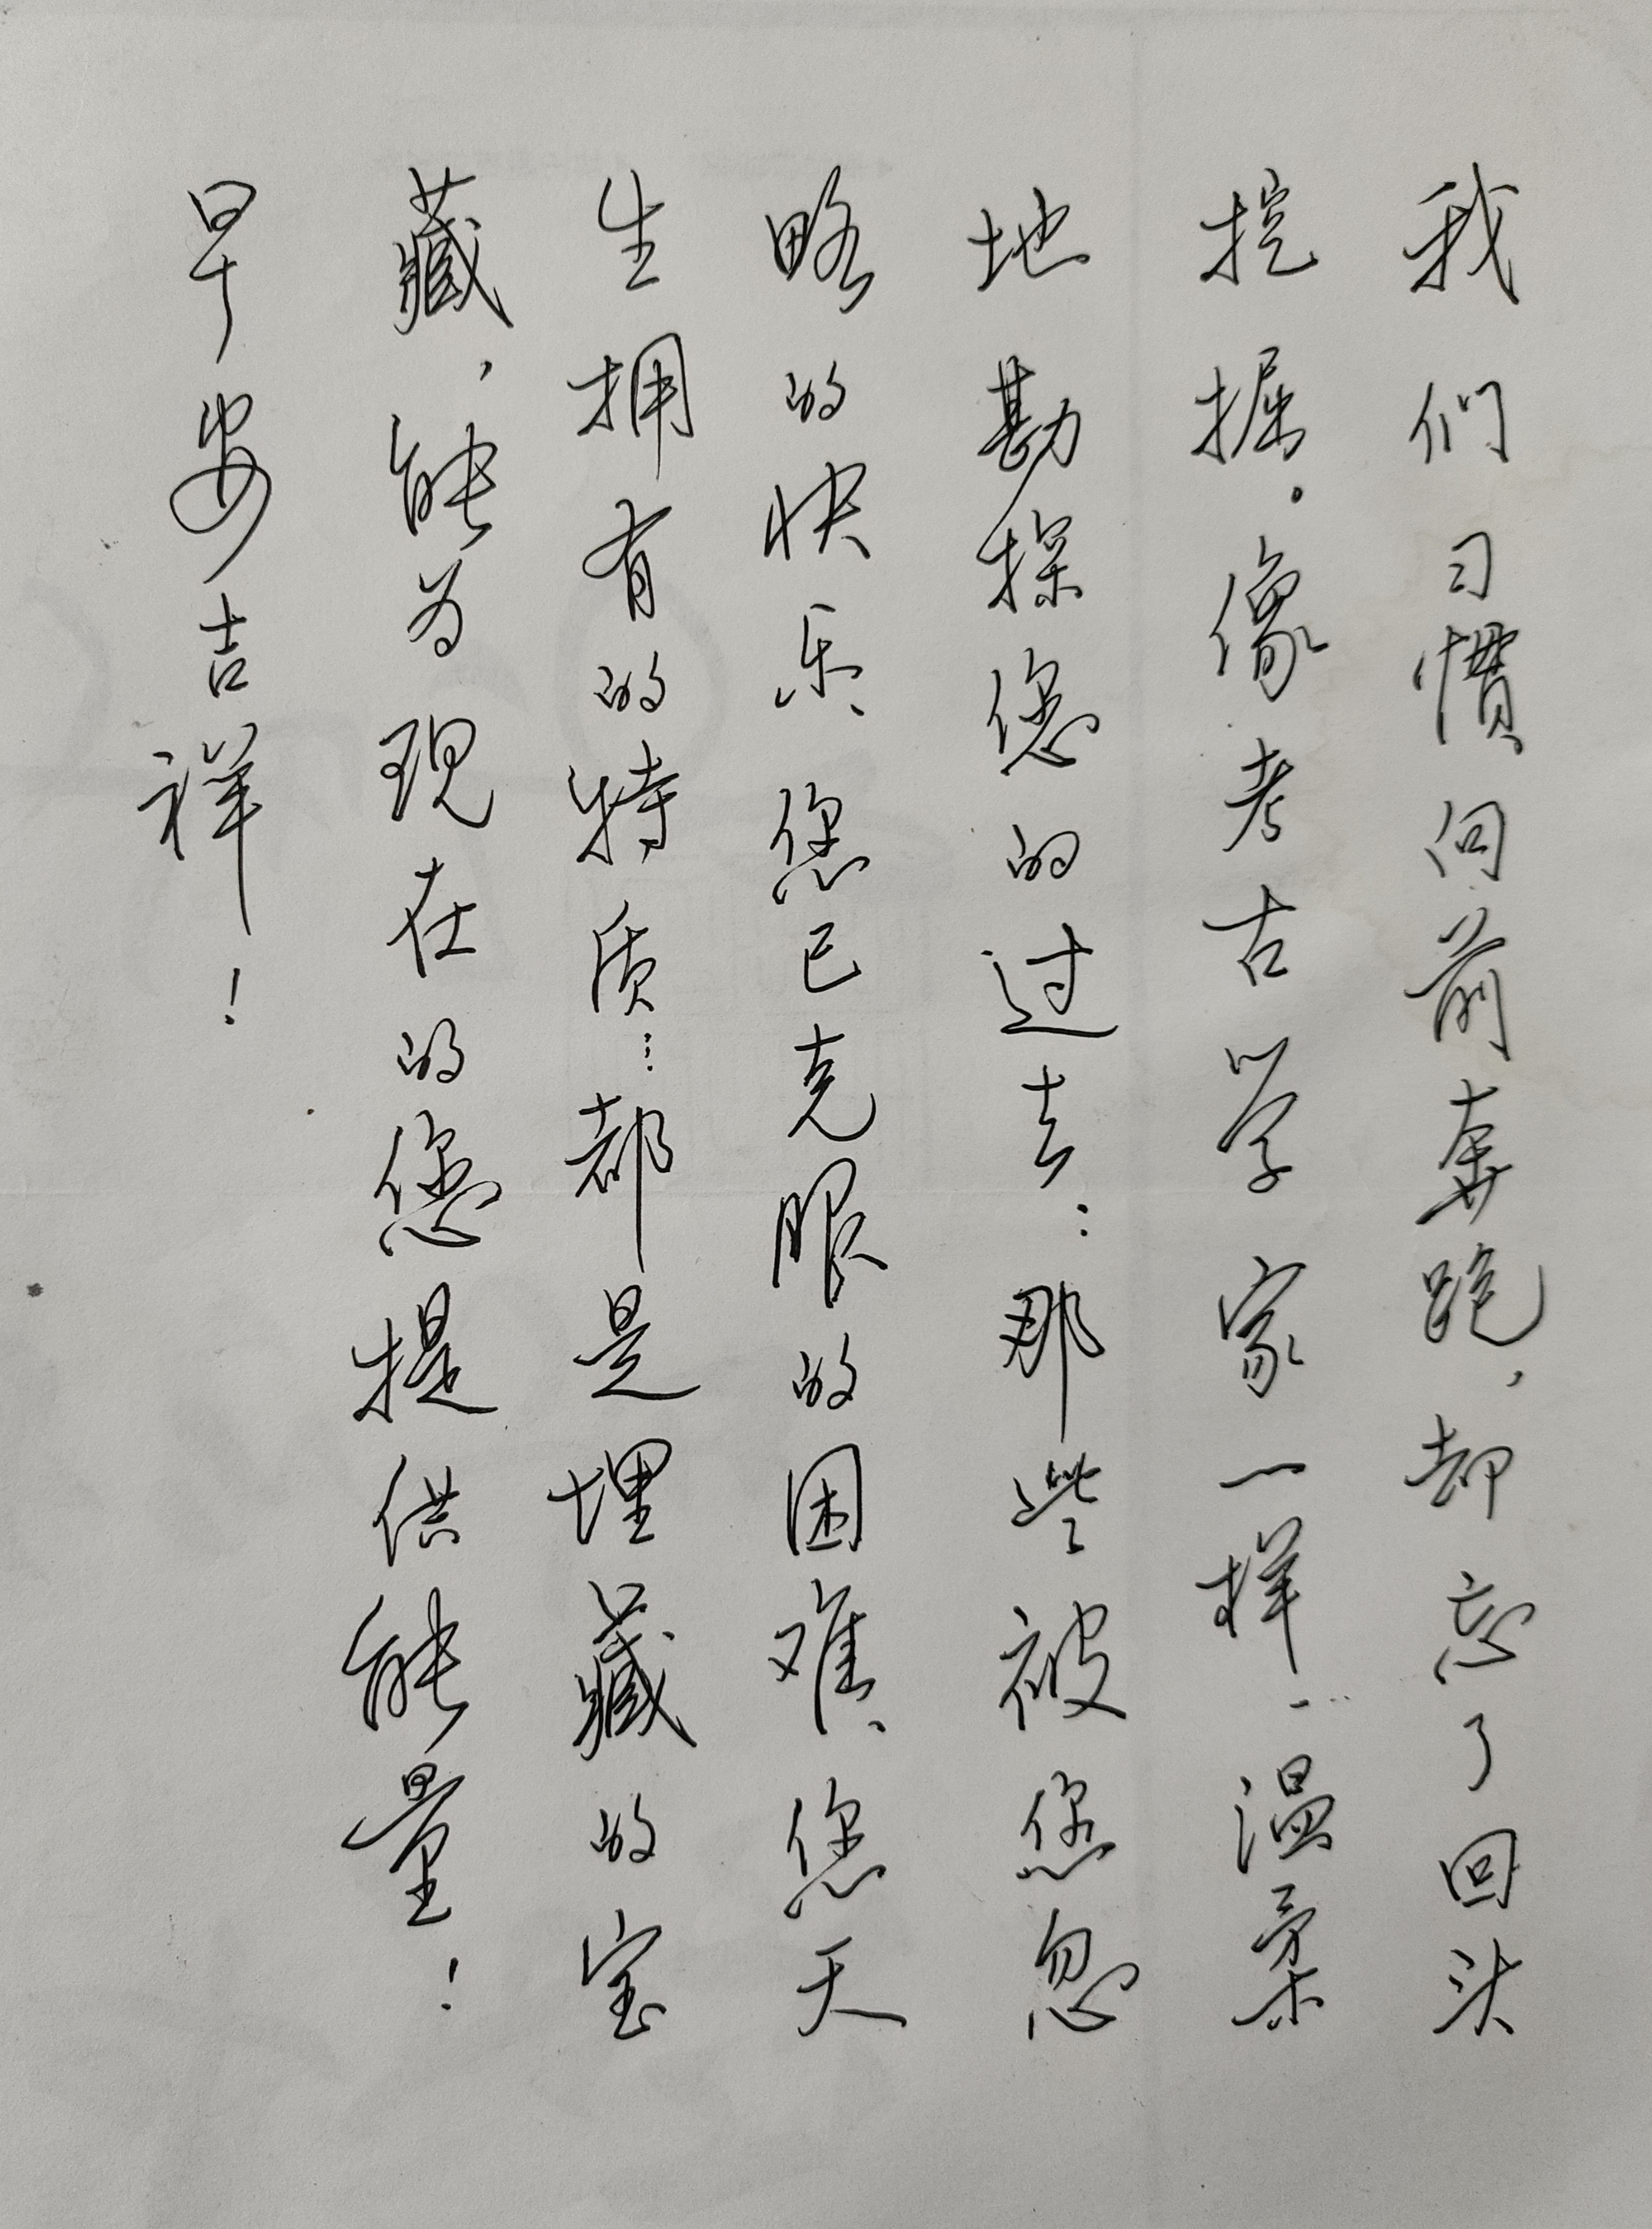 我们习惯向前奔跑，却忘了回头
挖掘。像考古学家一样，温柔
地勘探您的过去：那些被您忽
略的快乐、您已克服的困难、您天
生拥有的特质…都是埋藏的宝
藏，能为现在的您提供能量！
早安吉祥！